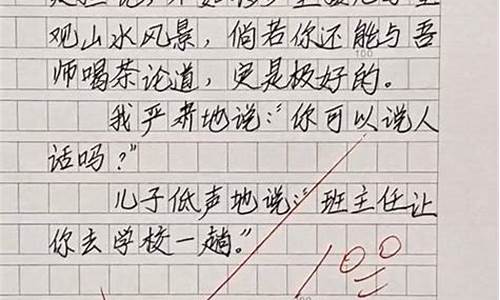 观山水风景，倘若你还能与吾
100
师喝茶论道，更是极好的。
我严肃地说：“你可以说人
话吗？”
儿子低声地说：“班主任让
你去学校一趟。”
100